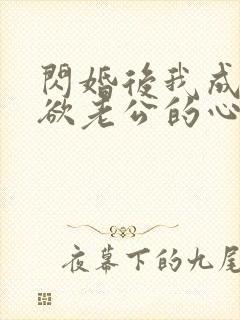 閃婚後我成
欲老公的心
夜幕下的九尾